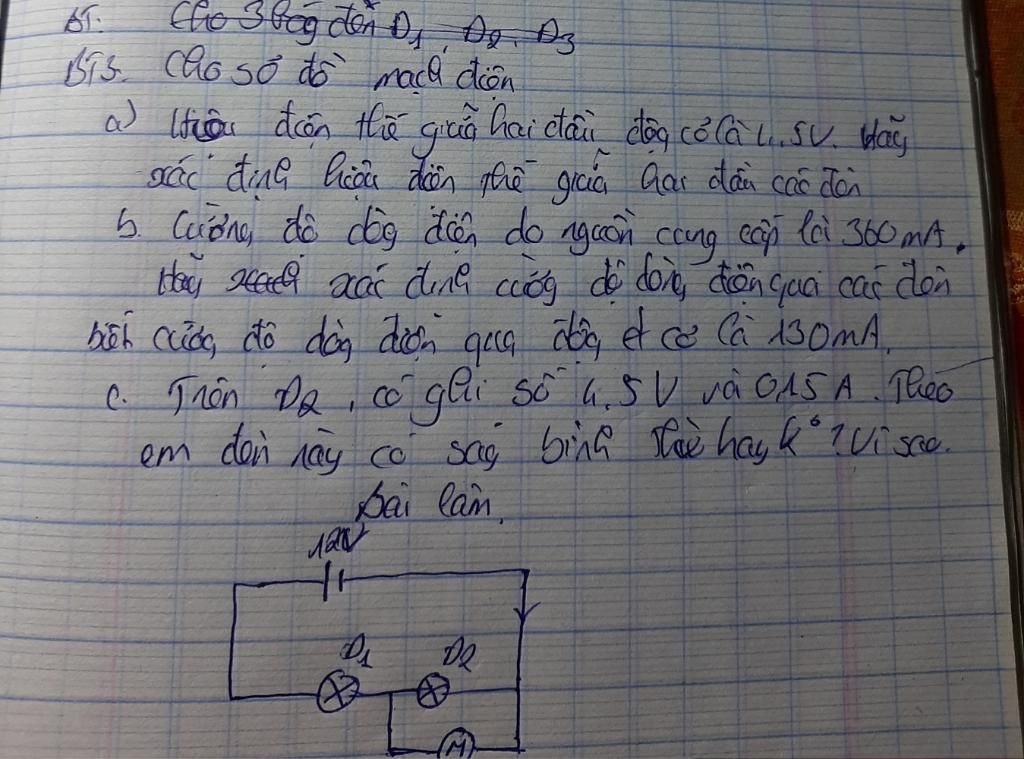 BT. Cho 3 bóg đèn Đ1, Đ2, Đ3
BT3. Cho sơ đồ mạch điện
a) Hiệu điện thế giữa hai đầu độg cơ là 4,5V. Hãy
xác định hiệu điện thế giữa hai đầu các đèn
b. Cường độ dòg điện do nguồn cung cấp là 360mA.
Hãy xác định cườg độ dòng điện qua các đèn
biết cườg độ dòg điện qua độg cơ là 130mA.
c. Trên Đ2, có ghi số 4,5V và 0,15A. Theo
em đèn này có ság bình thườ hay k°? Vì sao.
Bài làm.
12V
Đ1 Đ2
M